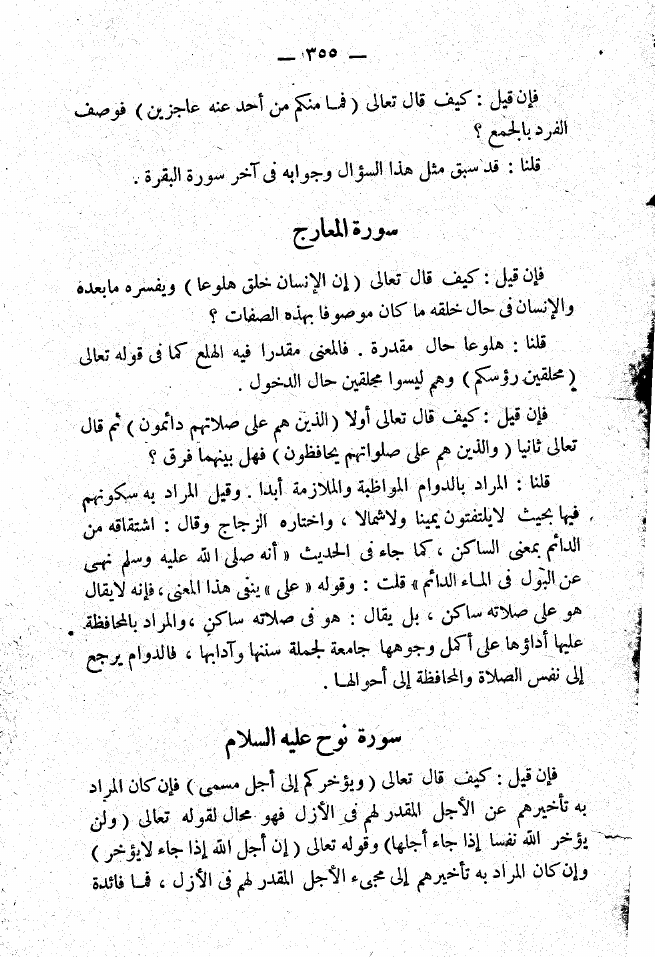 — ٣٥٥ —
فإن قيل : كيف قال تعالى ( فما منكم من أحد عنه عاجزين ) فوصف
الفرد بالجمع ؟
قلنا : قد سبق مثل هذا السؤال وجوابه فى آخر سورة البقرة .
سورة المعارج
فإن قيل : كيف قال تعالى ( إن الإنسان خلق هلوعا ) ويفسره مابعده
والإنسان فى حال خلقه ما كان موصوفا بهذه الصفات ؟
قلنا : هلوعا حال مقدرة . فالمعنى مقدرا فيه الهلع كما فى قوله تعالى
( محلقين رؤسكم ) وهم ليسوا محلقين حال الدخول .
فإن قيل : كيف قال تعالى أولا ( الذين هم على صلاتهم دائمون ) ثم قال
تعالى ثانيا ( والذين هم على صلواتهم يحافظون ) فهل بينهما فرق ؟
قلنا : المراد بالدوام المواظبة والملازمة أبدا . وقيل المراد به سكونهم
فيها بحيث لايلتفتون يمينا ولاشمالا ، واختاره الزجاج وقال : اشتقاقه من
الدائم بمعنى الساكن ، كما جاء فى الحديث « أنه صلى الله عليه وسلم نهى
عن البول فى الماء الدائم » قلت : وقوله « على » ينفى هذا المعنى ، فإنه لايقال
هو على صلاته ساكن ، بل يقال : هو فى صلاته ساكن ، والمراد بالمحافظة
عليها أداؤها على أكمل وجوهها جامعة لجملة سننها وآدابها ، فالدوام يرجع
إلى نفس الصلاة والمحافظة إلى أحوالها .
سورة نوح عليه السلام
فإن قيل : كيف قال تعالى ( ويؤخركم إلى أجل مسمى ) فإن كان المراد
به تأخيرهم عن الأجل المقدر لهم فى الأزل فهو محال لقوله تعالى ( ولن
يؤخر الله نفسا إذا جاء أجلها ) وقوله تعالى ( إن أجل الله إذا جاء لايؤخر )
وإن كان المراد به تأخيرهم إلى مجىء الأجل المقدر لهم فى الأزل ، فما فائدة